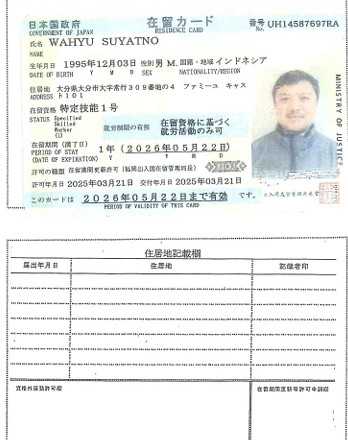 日本国政府 在留カード 番号 UH14587697RA
GOVERNMENT OF JAPAN RESIDENCE CARD No.
氏名 WAHYU SUYATNO
NAME
生年月日 1995年12月03日 性別 男 M. 国籍・地域 インドネシア
DATE OF BIRTH Y M D SEX NATIONALITY/REGION
住居地 大分県大分市大字常行309番地の4 ファミーユ キャス
ADDRESS R101
在留資格 特定技能1号
STATUS Specified Skilled Worker (i)
就労制限の有無 在留資格に基づく就労活動のみ可
在留期間(満了日) 1年 (2026年05月22日)
PERIOD OF STAY (DATE OF EXPIRATION) Y M D
許可の種類 在留期間更新許可
許可年月日 2025年03月21日 交付年月日 2025年03月21日
このカードは 2026年05月22日まで有効 です。
PERIOD OF VALIDITY OF THIS CARD
MINISTRY OF JUSTICE
住居地記載欄
届出年月日 住居地 記載者印
資格外活動許可欄 在留期間更新等許可申請欄